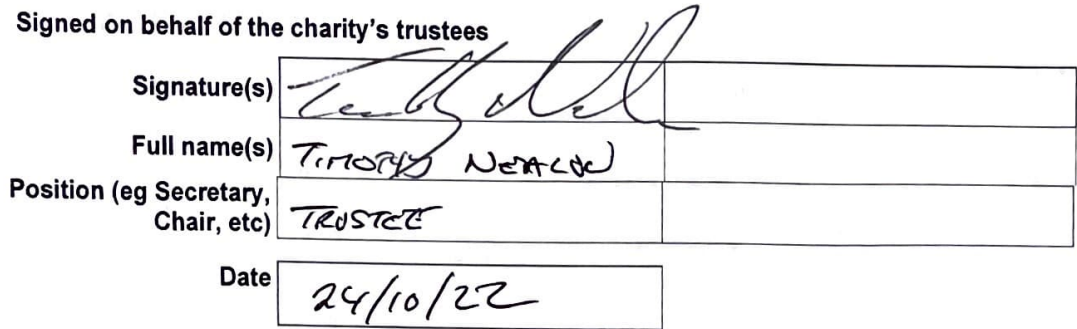 Signed on behalf of the charity's trustees
Signature(s)
Full name(s) TIMOTHY
Position (eg Secretary,
Chair, etc) TRUSTEE
Date 24/10/22